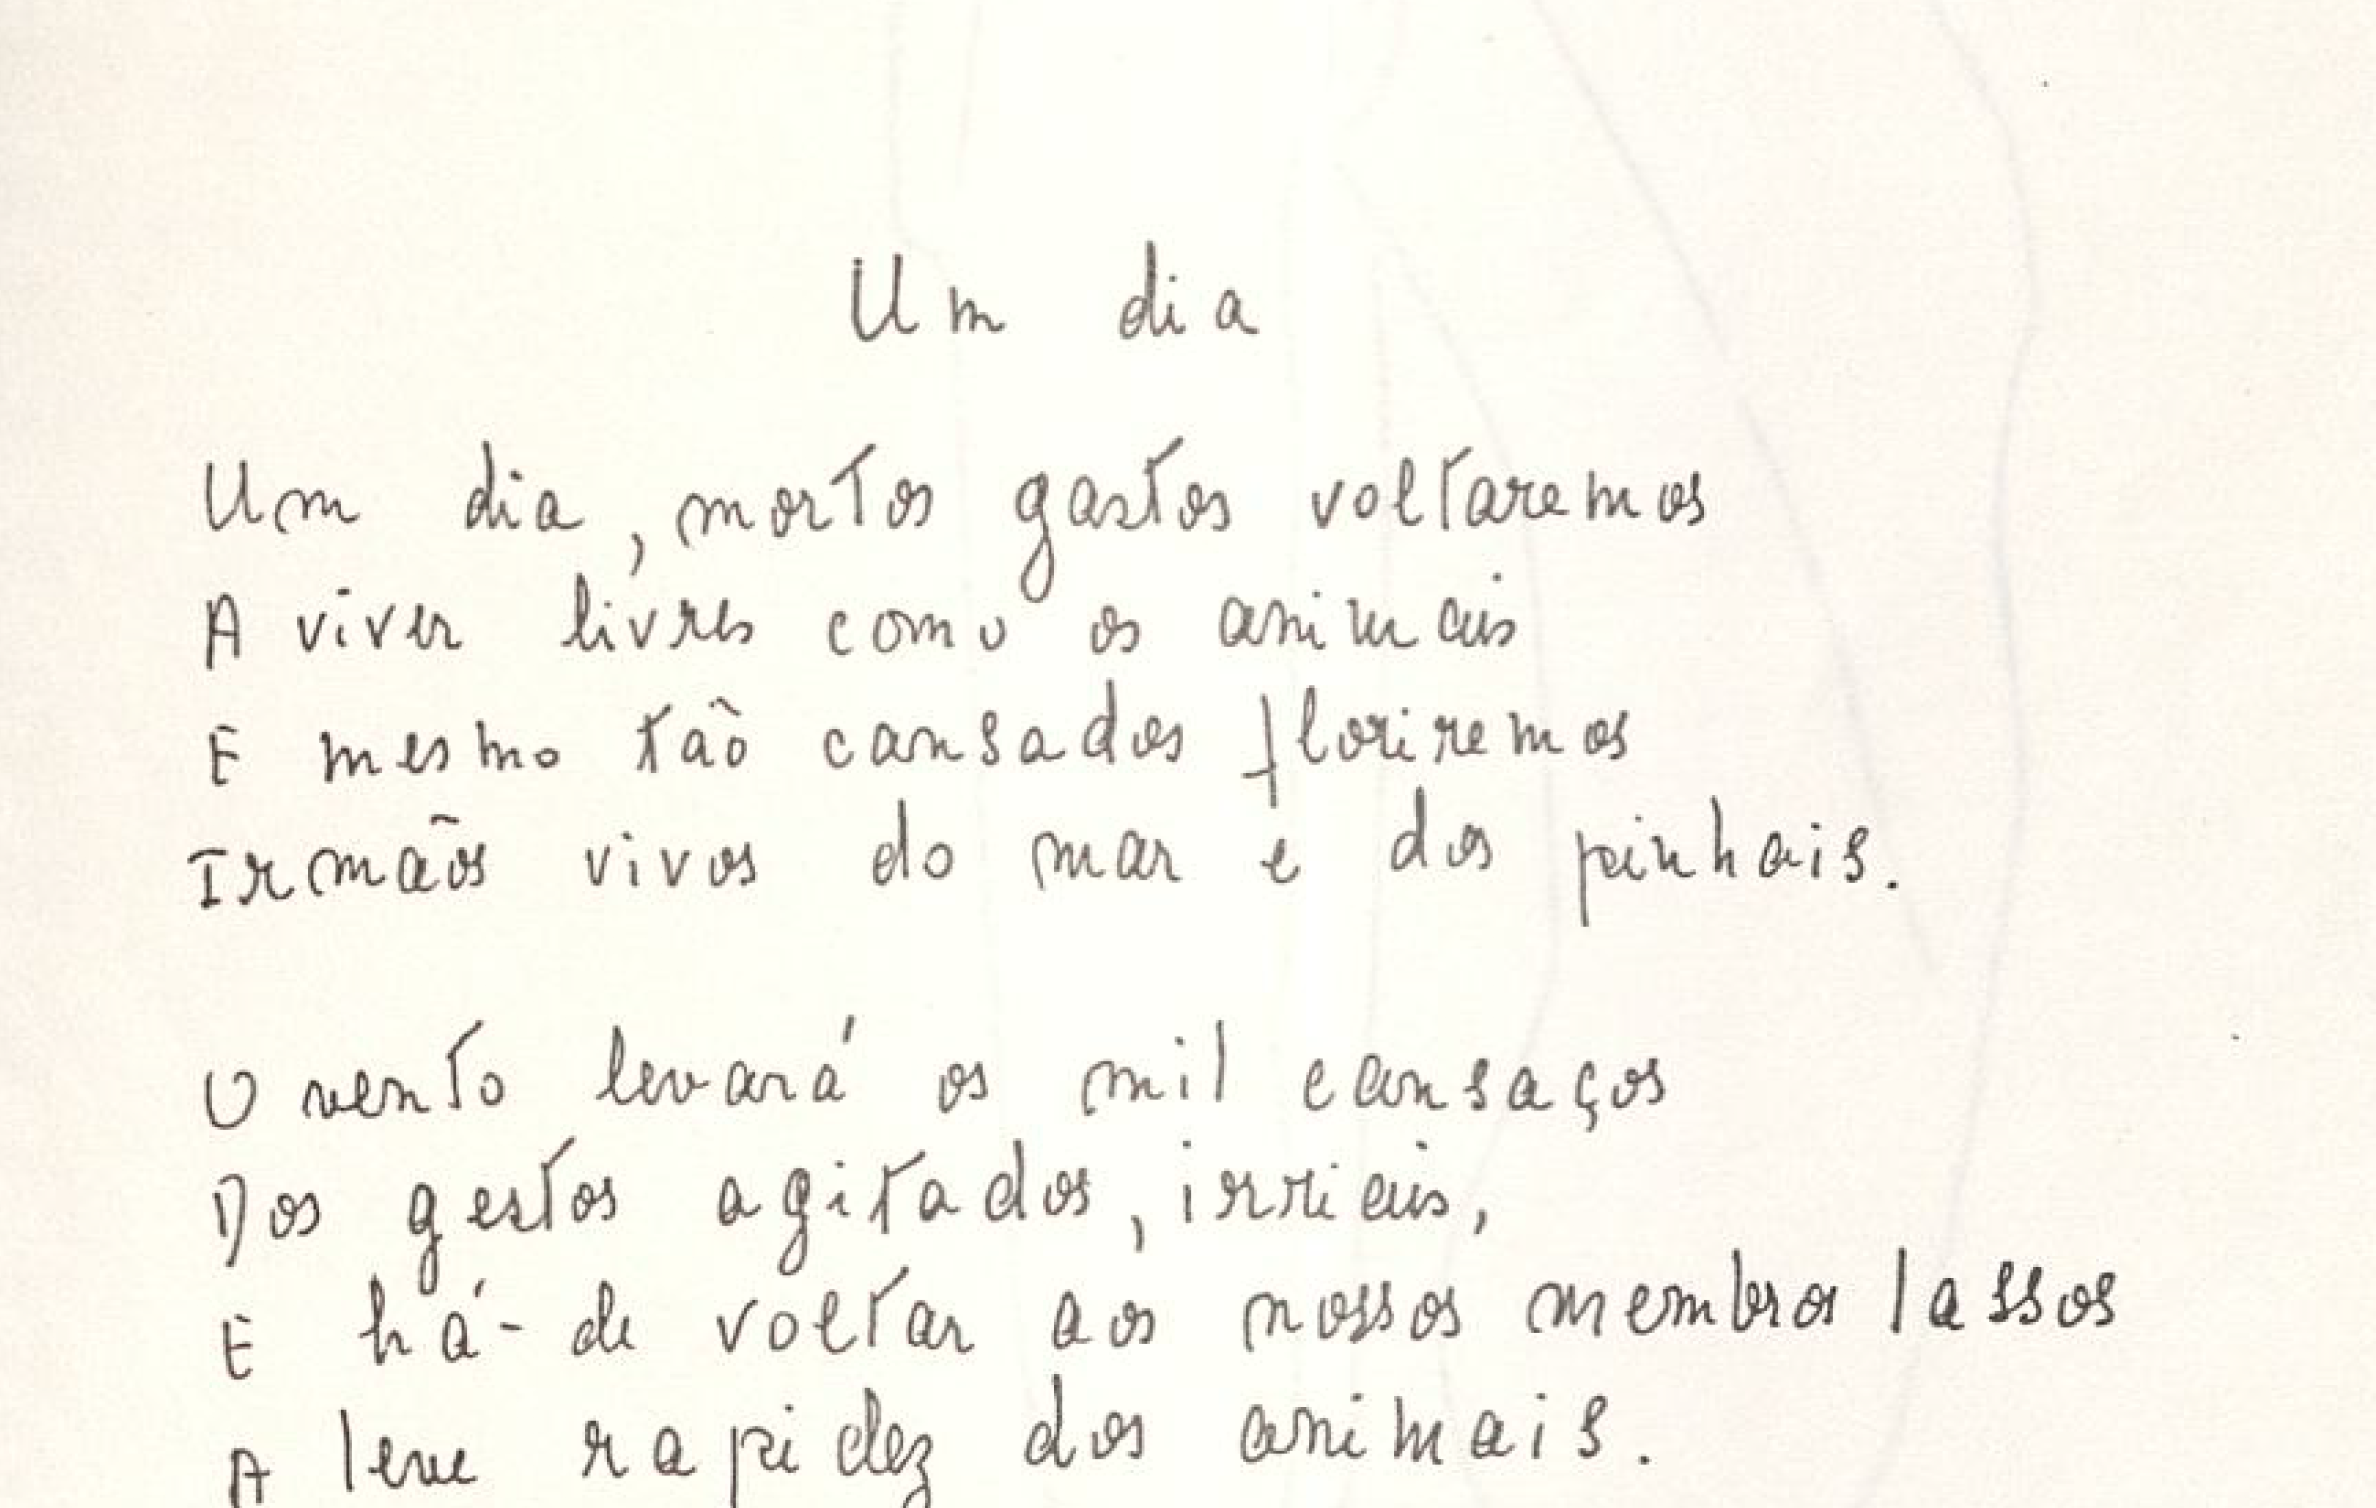 Um dia
Um dia, mortos gastos voltaremos
A viver livres como os animais
E mesmo tão cansados floriremos
Irmãos vivos do mar e dos pinhais.
O vento levará os mil cansaços
Dos gestos agitados, irriais,
E há-de voltar aos nossos membros lassos
A leve rapidez dos animais.